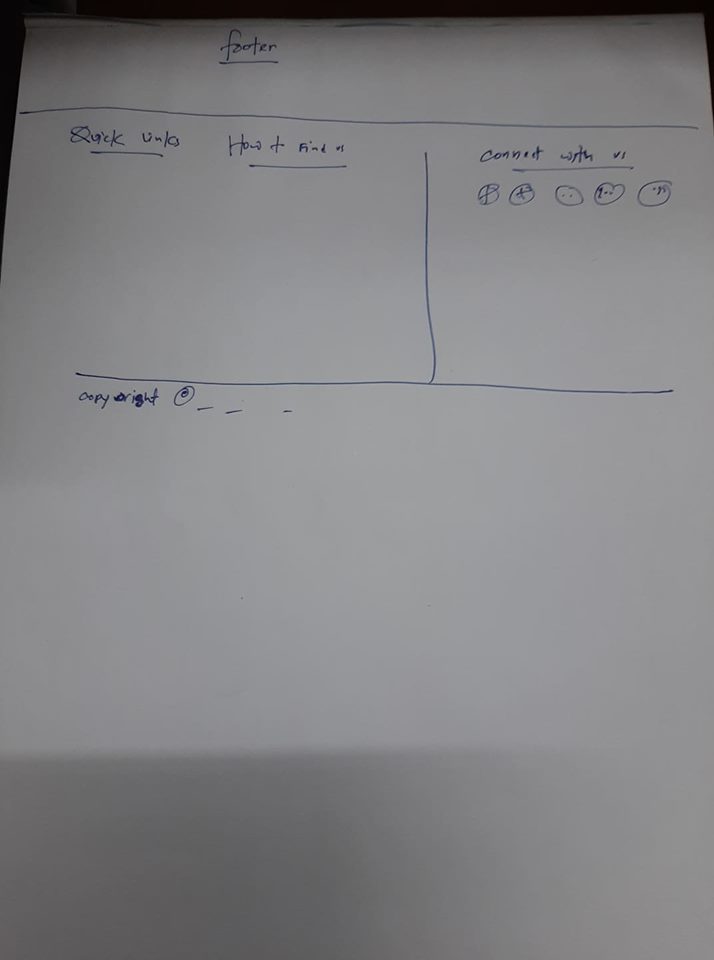 footer
Quick Links
How to Find us
connect with us
copyright ©